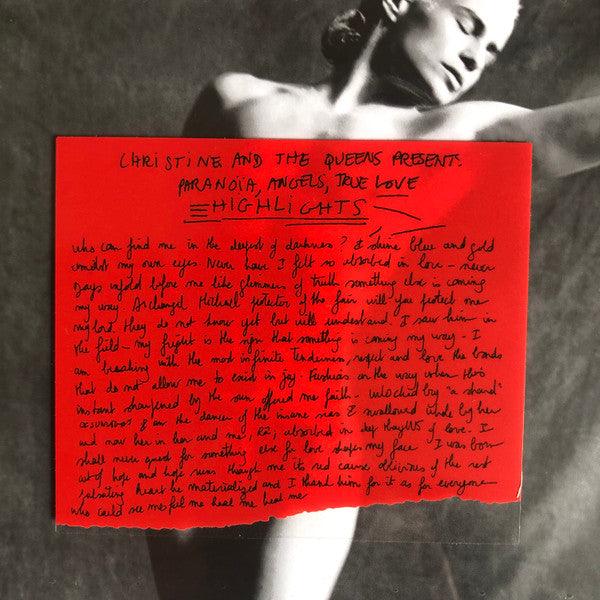 CHRISTINE AND THE QUEENS PRESENT:
PARANOÏA, ANGELS, TRUE LOVE
HIGHLIGHTS
who can find me in the deepest of darkness? I shine blue and gold
amidst my own eyes. Never have I felt so absorbed in love - never
Days unfold before me like glimmers of truth something else is coming
my way. Archangel Michael protector of the fair will you protect me
my lord. they do not know yet but will understand. I saw him in
the field - my fright is the sign that something is coming my way. I
am breaking with the most infinite tenderness, respect and love the bonds
that do not allow me to exist in joy. on the way when this
instant sharpened by the sun offered me faith. unlocked by "a strand"
I am the dancer of the insane I swallowed whole by her
and now her in him and me, absorbed in deep of love. I
shall never quest for something else for love shapes my face. I was born
out of hope and hope runs through me its red cause oblivious of the rest
pulsating heart he materialized and I thank him for it as for everyone
who could see me feel me heal me heal me